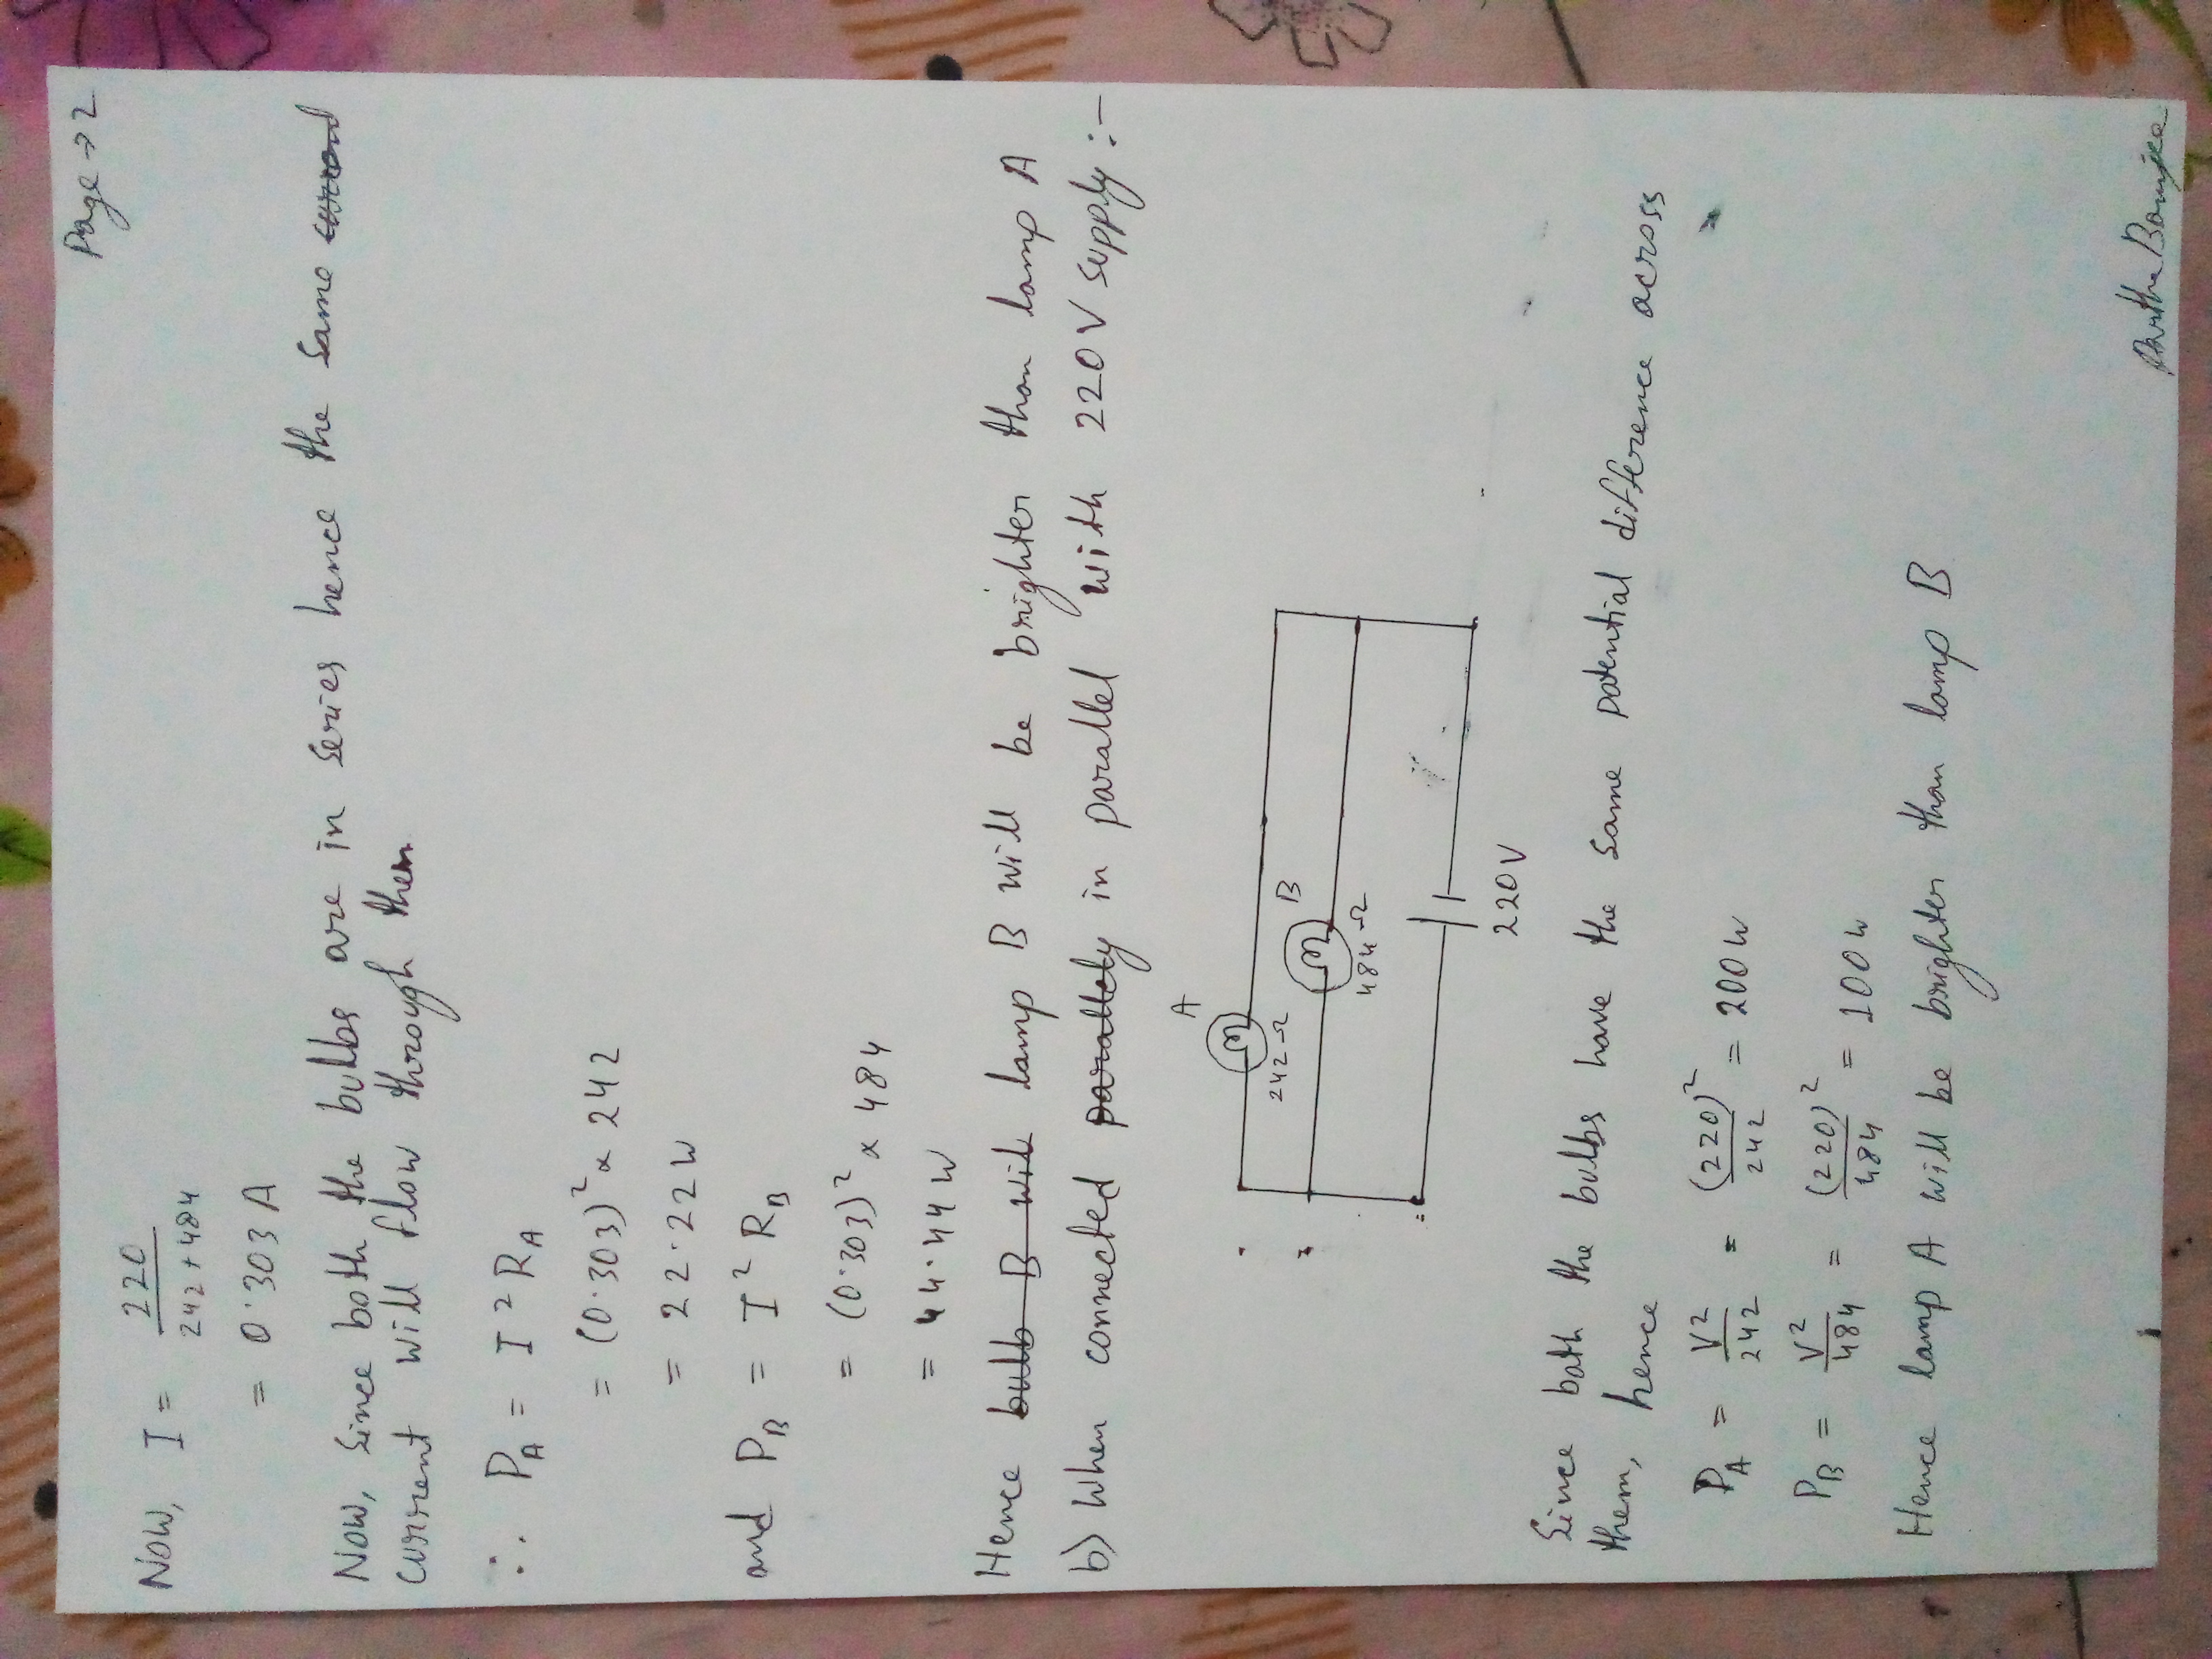 Page → 2
Now, I = 220 / 242 + 484
= 0.303 A
Now, since both the bulbs are in series hence the same current
current will flow through them
∴ P_A = I² R_A
= (0.303)² × 242
= 22.22 W
and P_B = I² R_B
= (0.303)² × 484
= 44.44 W
Hence bulb B wil lamp B will be brighter than lamp A
b) When connected parallely in parallel with 220 V supply :-
A
242 Ω
B
484 Ω
220 V
Since both the bulbs have the same potential difference across
them, hence
P_A = V² / 242 = (220)² / 242 = 200 W
P_B = V² / 484 = (220)² / 484 = 100 W
Hence lamp A will be brighter than lamp B
Partha